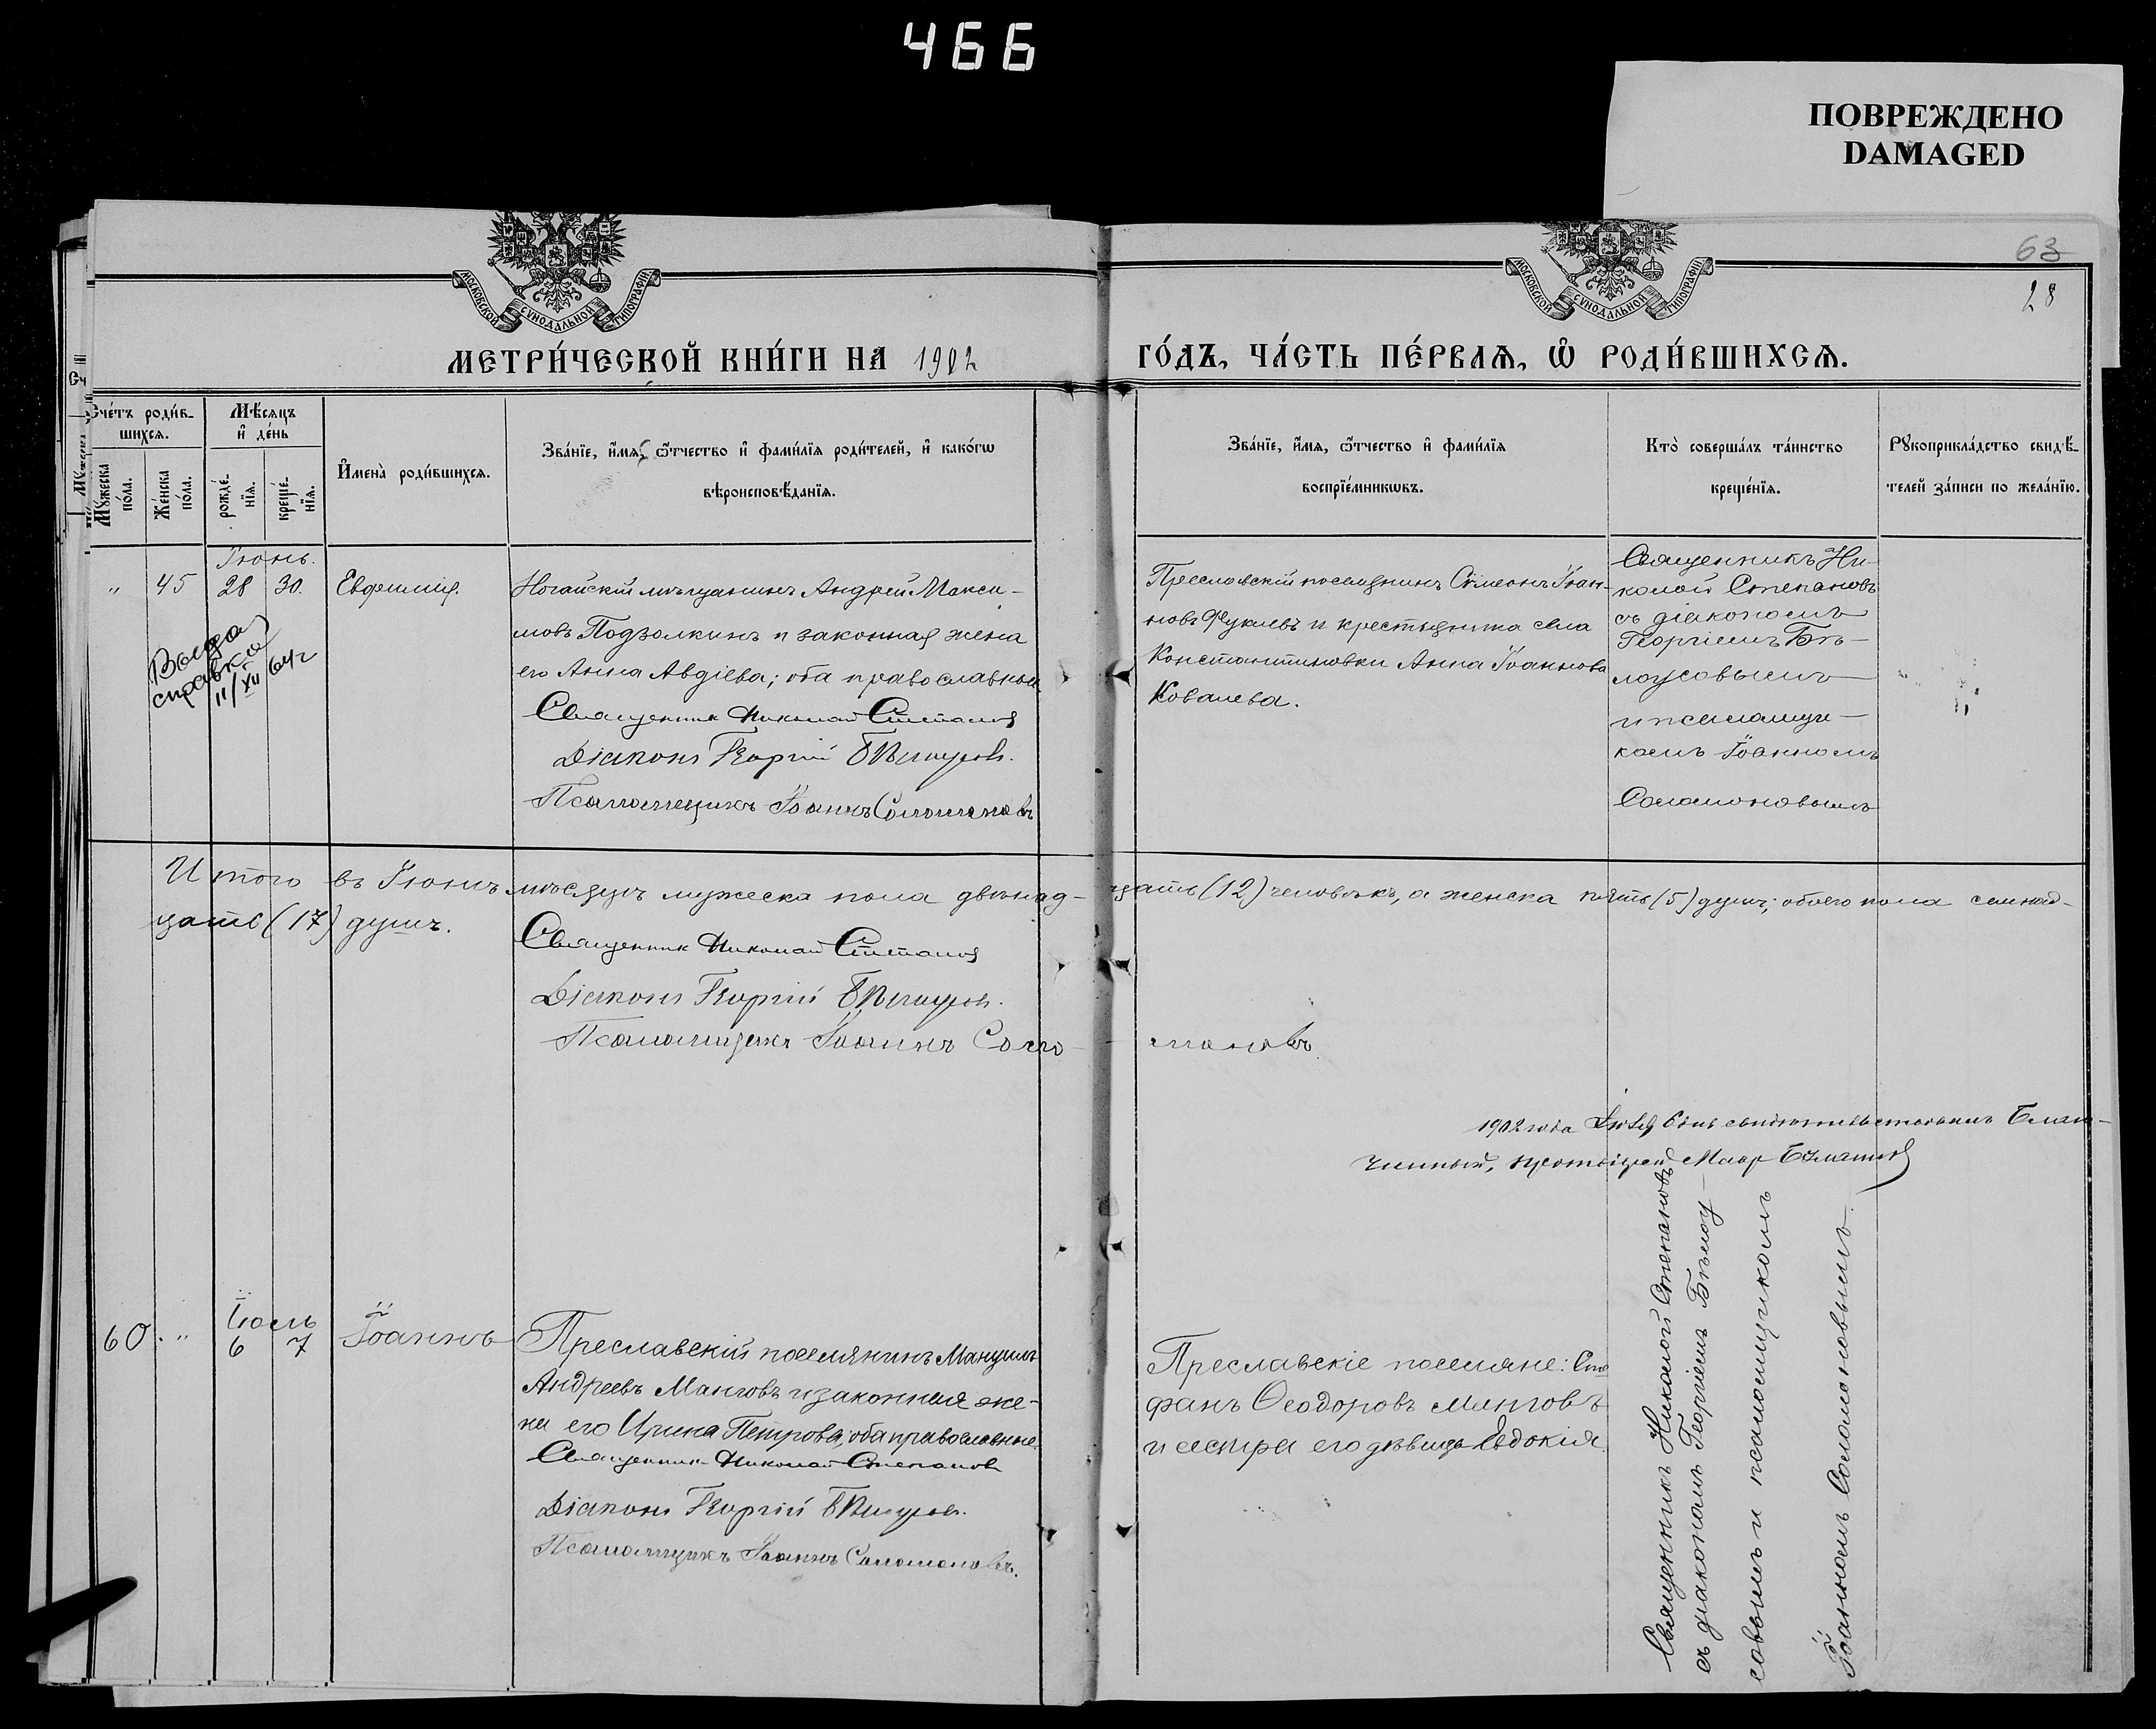 466
ПОВРЕЖДЕНО
DAMAGED
63
28
МОСКОВСКОЙ СѴНОДАЛЬНОЙ ТИПОГРАФІИ
МОСКОВСКОЙ СѴНОДАЛЬНОЙ ТИПОГРАФІИ
МЕТРИ́ЧЕСКОЙ КНИ́ГИ НА 1902
ГО́ДЪ, ЧА́СТЬ ПЕ́РВАѦ, Ѽ РОДИ́ВШИХСѦ.
Сче́тъ роди́в-
шихсѧ.
Мꙋ́жеска
по́ла.
Же́нска
по́ла.
Мѣ́сѧцъ
и҆ де́нь
рожде́-
нїѧ.
креще́-
нїѧ.
И҆мена̀ роди́вшихсѧ.
Зва́нїе, и҆́мѧ, ѻ҆́тчество и҆ фами́лїѧ роди́телей, и҆ како́гѡ
вѣроисповѣ́данїѧ.
Зва́нїе, и҆́мѧ, ѻ҆́тчество и҆ фами́лїѧ
воспрїе́мникѡвъ.
Кто̀ соверша́лъ та́инство
креще́нїѧ.
Рꙋкоприкла́дство свидѣ́-
телей за́писи по жела́нїю.
Іюнь.
" 45 28 30. Евфимія.
Выдана
справка
11/XII 64г
Ногайскій мѣщанинъ Андрей Макси-
мовъ Подзолкинъ и законная жена
его Анна Авдіева; оба православные
Священник Николай Степанов
Діаконъ Георгій Бѣлоусовъ.
Псаломщикъ Іоаннъ Соломоновъ
Преславскій поселянинъ Симеонъ Іоан-
новъ Фукиевъ и крестьянка села
Константиновки Анна Іоаннова
Ковалева.
Священникъ Ни-
колай Степановъ
съ діакономъ
Георгіемъ Бѣ-
лоусовымъ
и псаломщи-
комъ Іоанномъ
Соломоновымъ
Итого въ Іюнѣ мѣсяцѣ мужеска пола двѣнад-цать (12) человѣкъ, а женска пять (5) душъ; обоего пола семнад-
цать (17) душъ.
Священник Николай Степанов
Діаконъ Георгій Бѣлоусовъ.
Псаломщикъ Іоаннъ Соло-моновъ.
1902 года Іюля 6 дня свидѣтельствовалъ Благо-
чинный, протоіерей
Іюль
60. " 6 7 Іоаннъ
Преславскій поселянинъ Мануилъ
Андреевъ Манговъ и законная же-
на его Ирина Петрова; оба православные.
Священник Николай Степанов
Діаконъ Георгій Бѣлоусовъ.
Псаломщикъ Іоаннъ Соломоновъ.
Преславскіе поселяне: Сте
фанъ Ѳеодоровъ Манговъ
и сестра его дѣвица Евдокія.
Священникъ Николай Степановъ
съ діакономъ Георгіемъ Бѣлоу-
совымъ и псаломщикомъ
Іоанномъ Соломоновымъ.